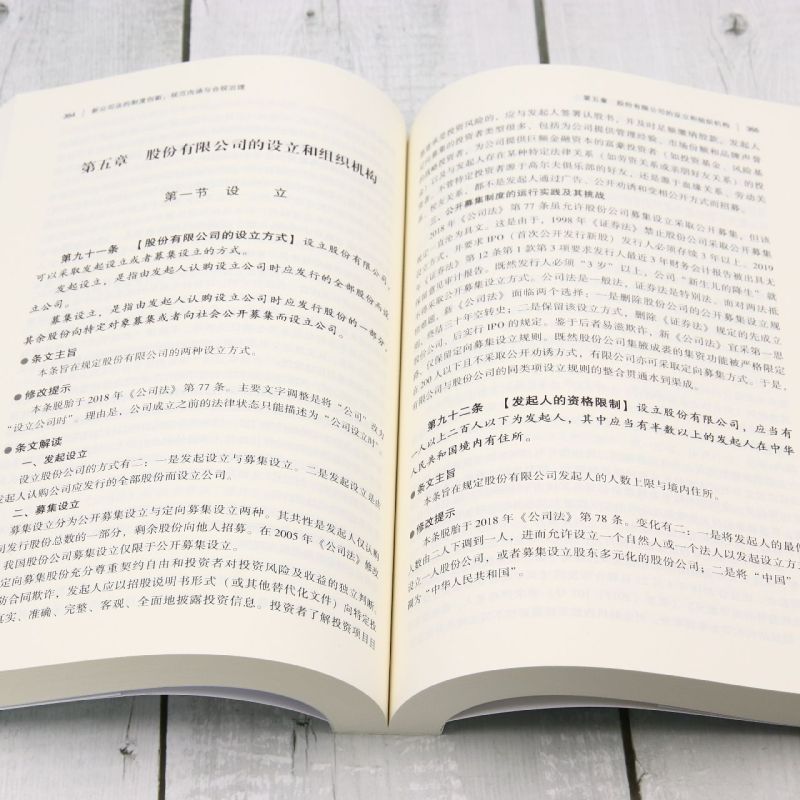 364 新公司法的制度创新、规范内涵与合规治理
第五章 股份有限公司的设立和组织机构
第一节 设 立
第九十一条 【股份有限公司的设立方式】 设立股份有限公司，
可以采取发起设立或者募集设立的方式。
发起设立，是指由发起人认购设立公司时应发行的全部股份而设
立公司。
募集设立，是指由发起人认购设立公司时应发行股份的一部分，
其余股份向特定对象募集或者向社会公开募集而设立公司。
●条文主旨
本条旨在规定股份有限公司的两种设立方式。
●修改提示
本条脱胎于 2018 年《公司法》第 77 条。主要文字调整是将“公司”改为
“设立公司时”。理由是，公司成立之前的法律状态只能描述为“公司设立时”。
●条文解读
一、发起设立
设立股份公司的方式有二：一是发起设立与募集设立。二是发起设立是由
发起人认购公司应发行的全部股份而设立公司。
二、募集设立
募集设立分为公开募集设立与定向募集设立两种。其共性是发起人仅认购
司发行股份总数的一部分，剩余股份向他人招募。在 2005 年《公司法》修改
我国股份公司募集设立仅限于公开募集设立。
定向募集股份充分尊重契约自由和投资者对投资风险及收益的独立判断。
防合同欺诈，发起人应以招股说明书形式（或其他替代化文件）向特定投
真实、准确、完整、客观、全面地披露投资信息。投资者了解投资项目且
第五章 股份有限公司的设立和组织机构 365
愿意承受投资风险的，应与发起人签署认股书，并及时足额缴纳股款。发起人
募集的投资者类型很多，包括为公司提供管理经验、市场份额和品牌声誉
战略投资者，为公司提供巨额金融资本的富豪投资者（如投资基金、风险基
以及与发起人存在某种特定法律关系（如劳资关系或亲朋好友关系）的投
不管特定投资者源于高尔夫俱乐部的好友，还是源于血缘关系、劳动关
校友关系，都不是发起人通过广告、公开劝诱和变相公开方式而招募。
三、公开募集制度的运行实践及其挑战
2018 年《公司法》第 77 条虽允许股份公司募集设立采取公开募集，但该
直沦为具文。这是由于，1998 年《证券法》禁止股份公司采取公开募集
方式，并要求 IPO（首次公开发行新股）发行人必须存续 3 年以上。2019
《证券法》第 12 条第 1 款第 3 项要求发行人最近 3 年财务会计报告被出具无
保留意见审计报告。既然发行人必须“3 岁”以上，公司“新生儿的降生”就
采取公开募集设立方式。公司法是一般法，证券法是特别法。面对两法抵
难题，新《公司法》面临两个选择：一是删除股份公司的公开募集设立规
终结三十年空转史；二是保留该设立方式，删除《证券法》规定的先成立
股份公司，后实行 IPO 的规定。鉴于后者易滋欺诈，新《公司法》宜采第一思
路，仅保留定向募集设立规则。既然股份公司集腋成裘的集资功能被严格限定
在 200 人以下且不采取公开劝诱方式，有限公司亦可采取定向募集方式。于是，
有限公司与股份公司的同类项设立规则的整合贯通水到渠成。
第九十二条 【发起人的资格限制】 设立股份有限公司，应当有
一人以上二百人以下为发起人，其中应当有半数以上的发起人在中华
人民共和国境内有住所。
●条文主旨
本条旨在规定股份有限公司发起人的人数上限与境内住所。
●修改提示
本条脱胎于 2018 年《公司法》第 78 条。变化有二：一是将发起人的最低
人数由二人下调到一人，进而允许设立一个自然人或一个法人以发起设立方式
设立一人股份公司，或者募集设立股东多元化的股份公司；二是将“中国”
调为“中华人民共和国”。